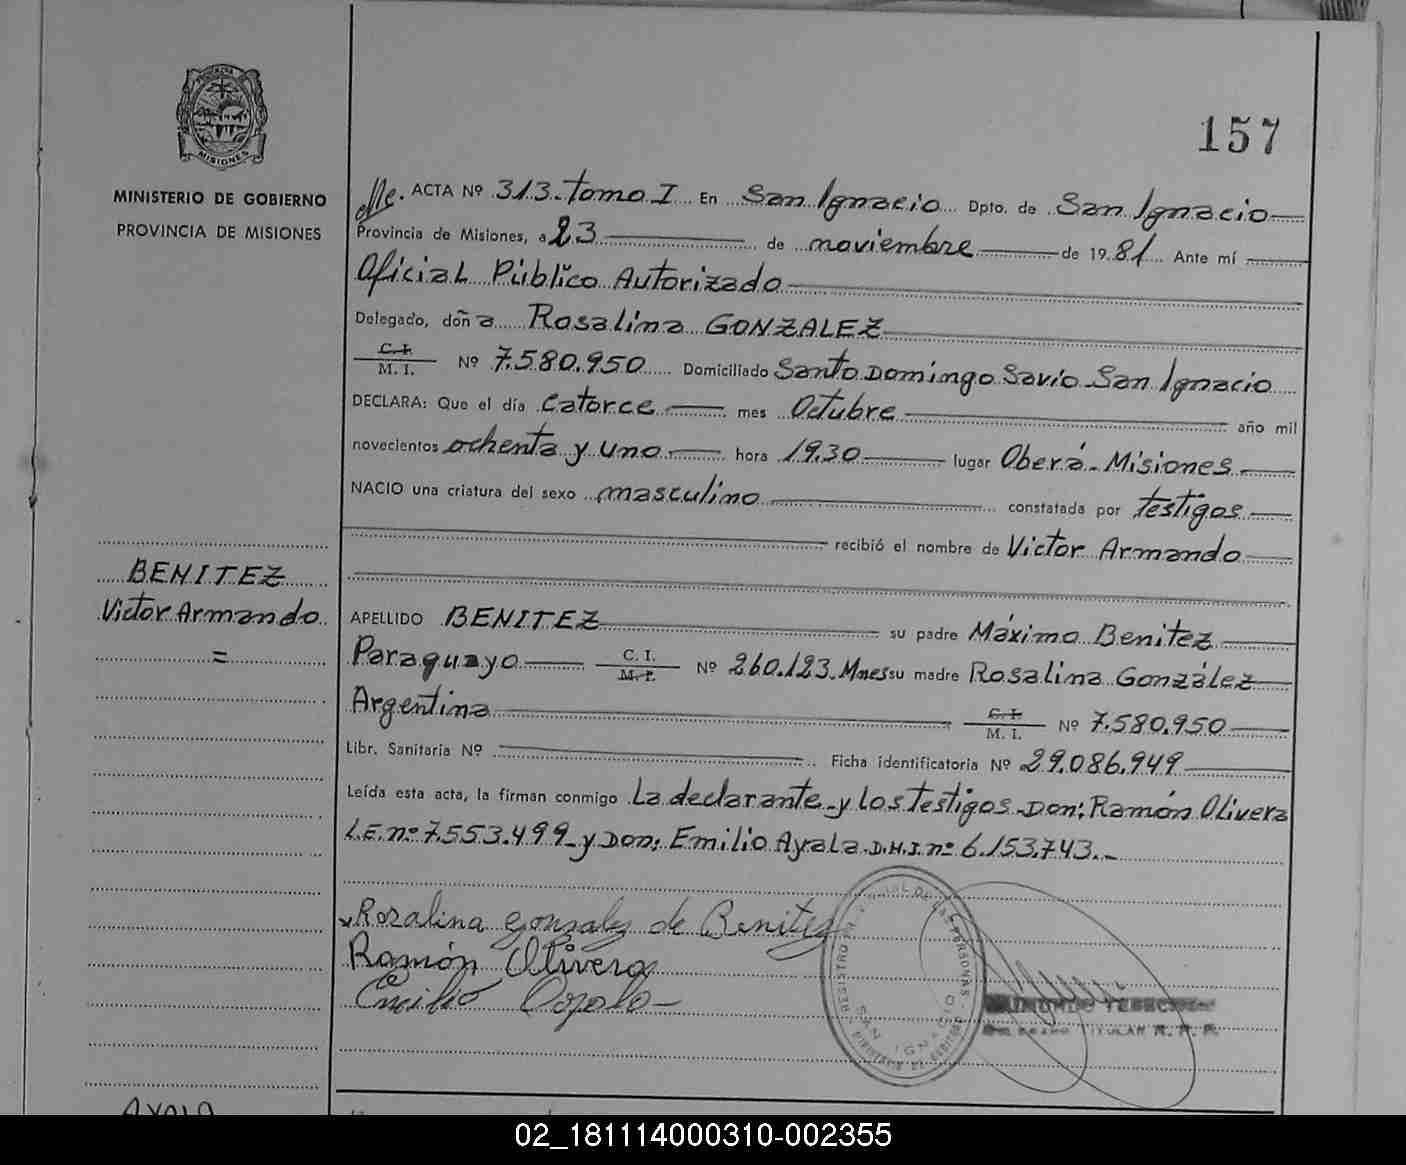 157
MISIONES
MINISTERIO DE GOBIERNO
PROVINCIA DE MISIONES
BENITEZ
Victor Armando
=
ACTA Nº 313. Tomo I En San Ignacio Dpto. de San Ignacio
Provincia de Misiones, a 23 de noviembre de 1981 Ante mí
Oficial Público Autorizado
Delegado, doña Rosalina GONZALEZ
C. I. / M. I. Nº 7.580.950 Domiciliado Santo Domingo Savio San Ignacio
DECLARA: Que el día catorce mes Octubre año mil
novecientos ochenta y uno hora 19.30 lugar Oberá - Misiones
NACIO una criatura del sexo masculino constatada por testigos
recibió el nombre de Victor Armando
APELLIDO BENITEZ su padre Máximo Benitez
Paraguayo C. I. / M. I. Nº 260.123. Mnes su madre Rosalina González
Argentina C. I. / M. I. Nº 7.580.950
Libr. Sanitaria Nº Ficha identificatoria Nº 29.086.949
Leída esta acta, la firman conmigo La declarante y los testigos Don: Ramón Olivera
L.E. nº 7.553.499 y Don: Emilio Ayala D.N.I. nº 6.153.743.-
Rozalina gonzalez de Benitez
Ramón Olivera
Emilio
SAN IGNACIO
TITULAR R. P. P.
02_181114000310-002355